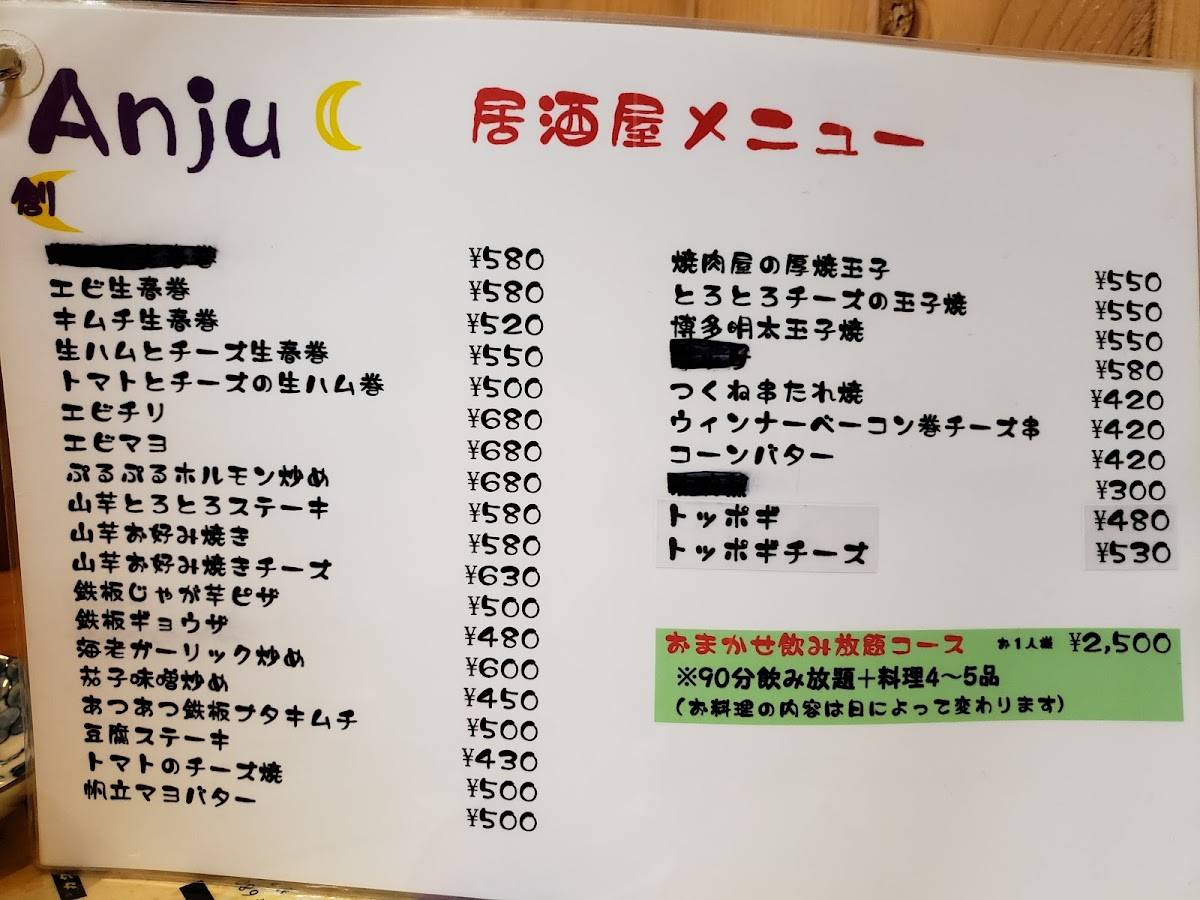 Anju
居酒屋メニュー
創
¥580
エビ生春巻 ¥580
キムチ生春巻 ¥520
生ハムとチーズ生春巻 ¥550
トマトとチーズの生ハム巻 ¥500
エビチリ ¥680
エビマヨ ¥680
ぷるぷるホルモン炒め ¥680
山芋とろとろステーキ ¥580
山芋お好み焼き ¥580
山芋お好み焼きチーズ ¥630
鉄板じゃが芋ピザ ¥500
鉄板ギョウザ ¥480
海老ガーリック炒め ¥600
茄子味噌炒め ¥450
あつあつ鉄板ブタキムチ ¥500
豆腐ステーキ ¥430
トマトのチーズ焼 ¥500
帆立マヨバター ¥500
焼肉屋の厚焼玉子 ¥550
とろとろチーズの玉子焼 ¥550
博多明太玉子焼 ¥550
¥580
つくね串たれ焼 ¥420
ウィンナーベーコン巻チーズ串 ¥420
コーンバター ¥420
¥300
トッポギ ¥480
トッポギチーズ ¥530
おまかせ飲み放題コース お1人様 ¥2,500
※90分飲み放題+料理4~5品
(お料理の内容は日によって変わります)